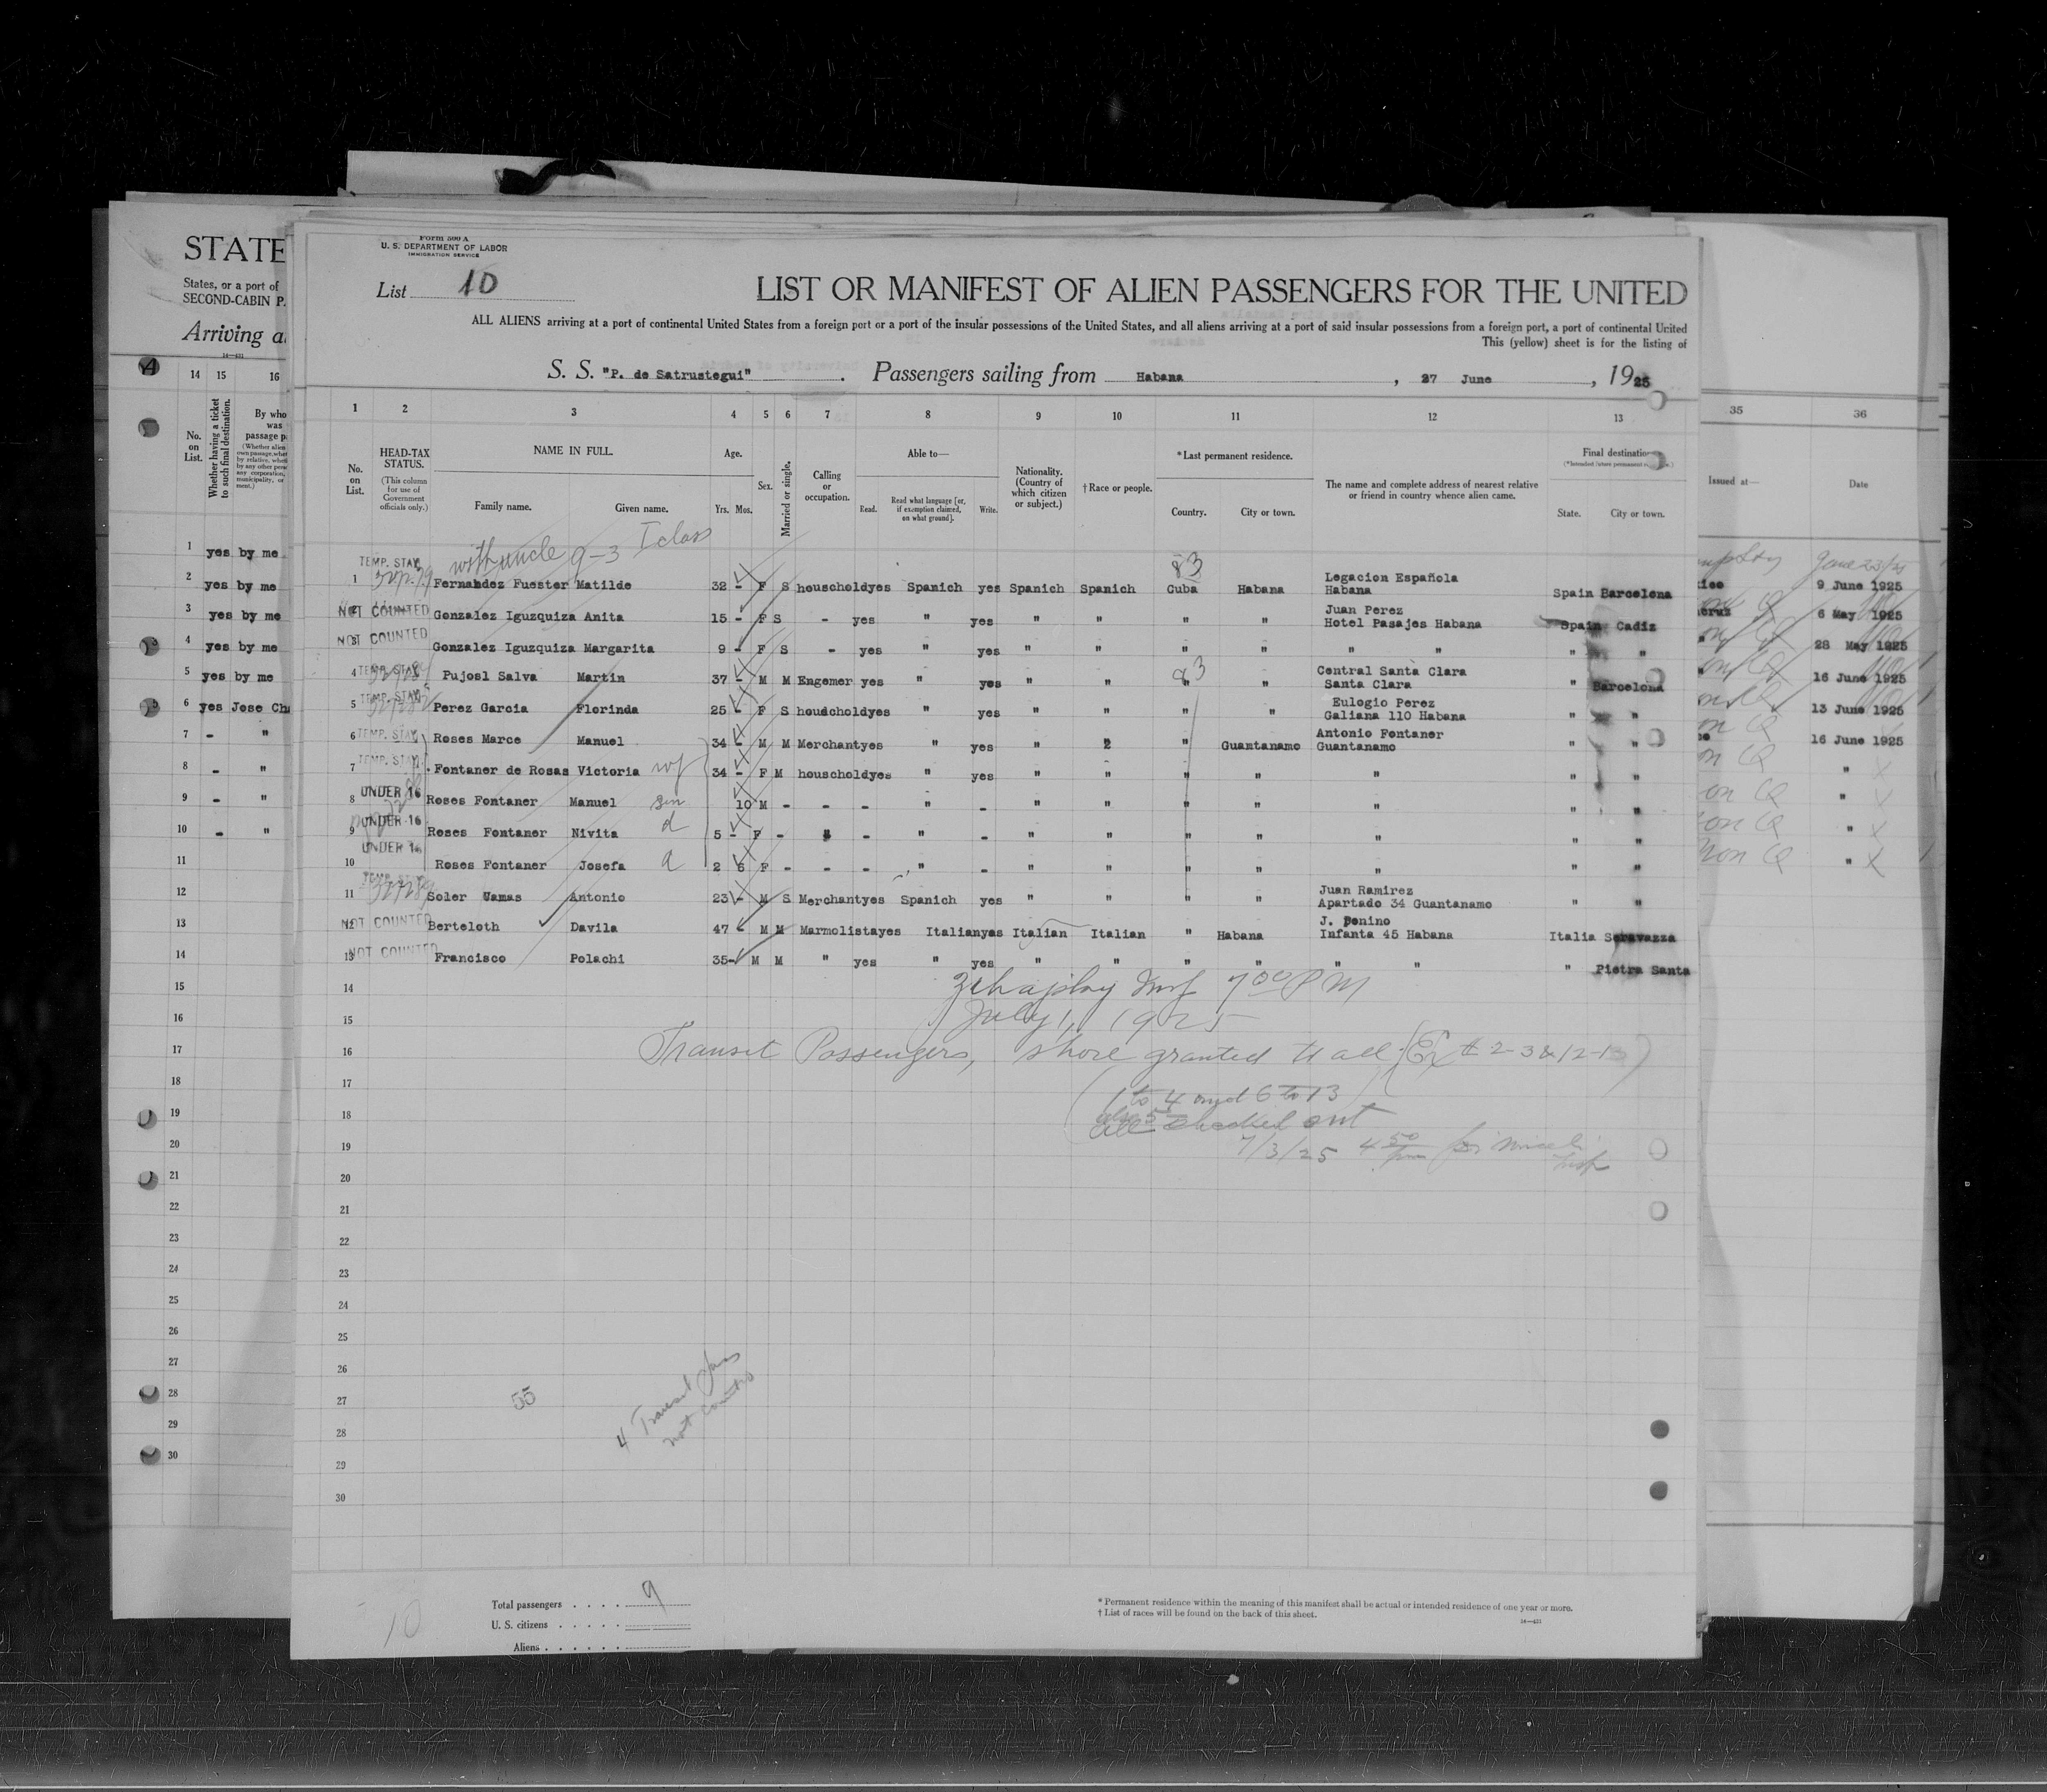 STATE
States, or a port of
SECOND-CABIN P
Arriving a
14 15 16
No. on List.
Whether having a ticket to such final destination.
By who was passage p
1 yes by me
2 yes by me
3 yes by me
4 yes by me
5 yes by me
6 yes Jose Ch
7 - "
8 - "
9 - "
10 - "
11
12
13
14
15
16
17
18
19
20
21
22
23
24
25
26
27
28
29
30
Form 500 A
U. S. DEPARTMENT OF LABOR
IMMIGRATION SERVICE
List 10
LIST OR MANIFEST OF ALIEN PASSENGERS FOR THE UNITED
ALL ALIENS arriving at a port of continental United States from a foreign port or a port of the insular possessions of the United States, and all aliens arriving at a port of said insular possessions from a foreign port, a port of continental United
This (yellow) sheet is for the listing of
S. S. "P. de Satrustegui" . Passengers sailing from Habana , 27 June , 1925
1 2 3 4 5 6 7 8 9 10 11 12 13
No. on List.
HEAD-TAX STATUS.
(This column for use of Government officials only.)
NAME IN FULL.
Family name. Given name.
Age.
Yrs. Mos.
Sex.
Married or single.
Calling or occupation.
Able to—
Read. Read what language [or, if exemption claimed, on what ground]. Write.
Nationality. (Country of which citizen or subject.)
†Race or people.
*Last permanent residence.
Country. City or town.
The name and complete address of nearest relative or friend in country whence alien came.
Final destination
State. City or town.
with uncle 9-3 I class
TEMP. STAY 83
1 Fernandez Fuester Matilde 32 - F S household yes Spanich yes Spanich Spanich Cuba Habana Legacion Española Habana Spain Barcelona
2 NOT COUNTED Gonzalez Iguzquiza Anita 15 - F S - yes " yes " " " " Juan Perez Hotel Pasajes Habana Spain Cadiz
3 NOT COUNTED Gonzalez Iguzquiza Margarita 9 - F S - yes " yes " " " " " " " "
4 TEMP. STAY Pujosl Salva Martin 37 - M M Engemer yes " yes " " 83 " " Central Santa Clara Santa Clara " Barcelona
5 TEMP. STAY Perez Garcia Florinda 25 - F S household yes " yes " " " " Eulogio Perez Galiana 110 Habana " "
6 TEMP. STAY Roses Marce Manuel 34 - M M Merchant yes " yes " " " Guantanamo Antonio Fontaner Guantanamo " "
7 TEMP. STAY Fontaner de Rosas Victoria wf 34 - F M household yes " yes " " " " " " "
8 UNDER 16 Roses Fontaner Manuel son 10 M - - - " - " " " " " " "
9 UNDER 16 Roses Fontaner Nivita d 5 - F - " - " - " " " " " " "
10 UNDER 16 Roses Fontaner Josefa d 2 6 F - - - " - " " " " " " "
11 TEMP. STAY Soler Camas Antonio 23 - M S Merchant yes Spanich yes " " " " Juan Ramirez Apartado 34 Guantanamo " "
12 NOT COUNTED Berteloth Davila 47 - M M Marmolista yes Italian yes Italian Italian " Habana J. Penino Infanta 45 Habana Italia Seravazza
13 NOT COUNTED Francisco Polachi 35 - M M " yes " yes " " " " " " " Pietra Santa
14
7 00 PM
15
July 1, 1925
16
Transit Passengers, shore granted to all (Ex # 2-3 & 12-13)
17
1 to 4 and 6 to 13
18
also 5 checked out
19
7/3/25 4 50 pm
20
21
22
23
24
25
26
27
28
29
30
55
4 Transit
not counted
10
Total passengers . . . . 9
U. S. citizens . . . . .
Aliens . . . . . .
* Permanent residence within the meaning of this manifest shall be actual or intended residence of one year or more.
† List of races will be found on the back of this sheet.
35 36
Issued at— Date
June 23/25
9 June 1925
6 May 1925
28 May 1925
16 June 1925
13 June 1925
16 June 1925
" X
" X
" X
" X